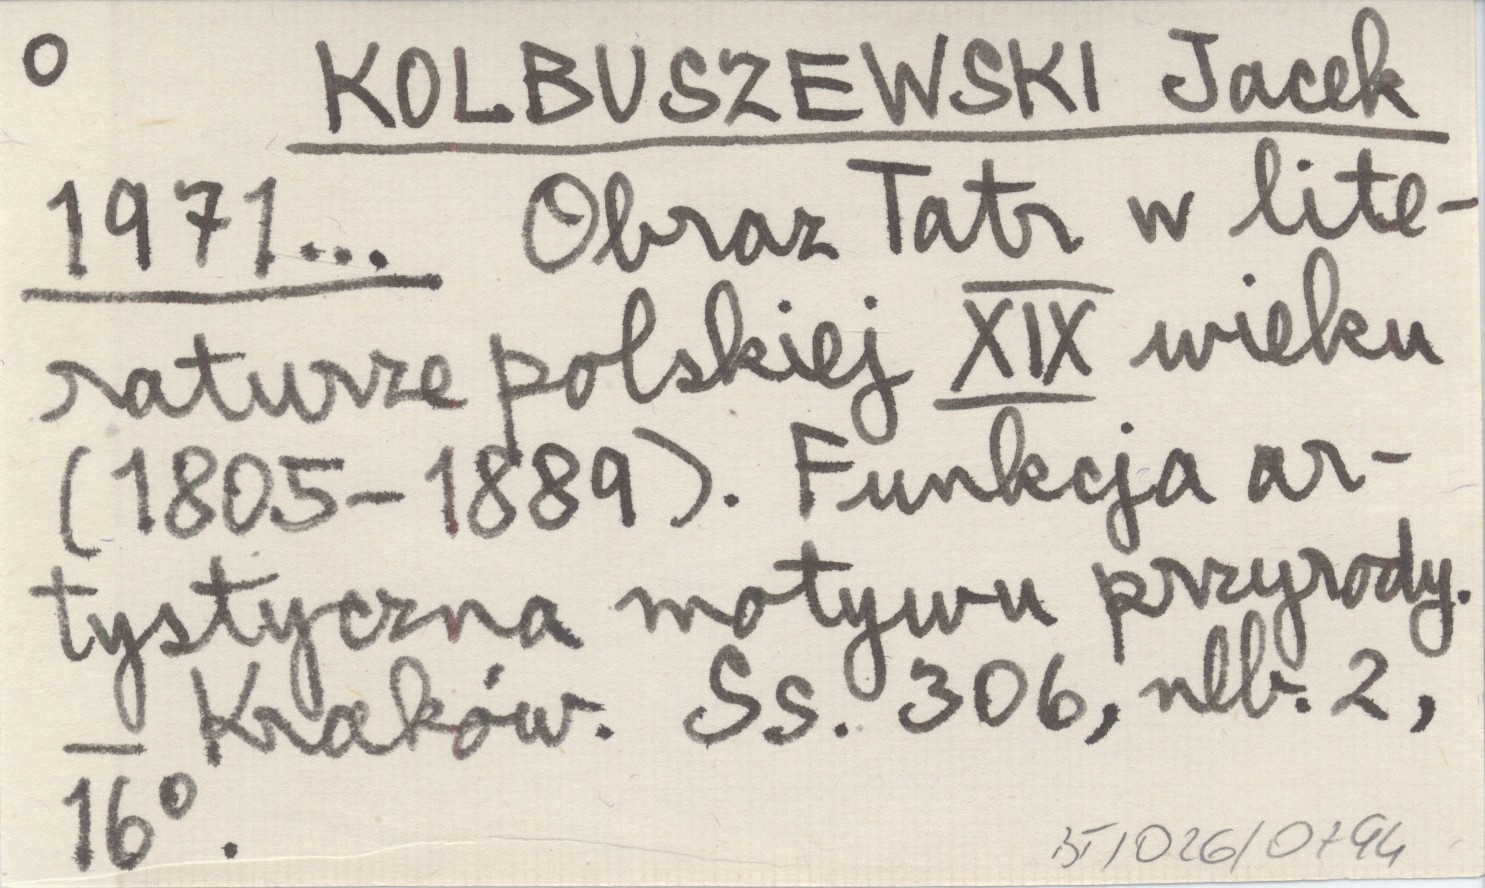 o KOLBUSZEWSKI Jacek
1971... Obraz Tatr w lite-
raturze polskiej XIX wieku
(1805-1889). Funkcja ar-
tystyczna motywu przyrody.
— Kraków. Ss. 306, nlb. 2,
16°.
BT/026/0794